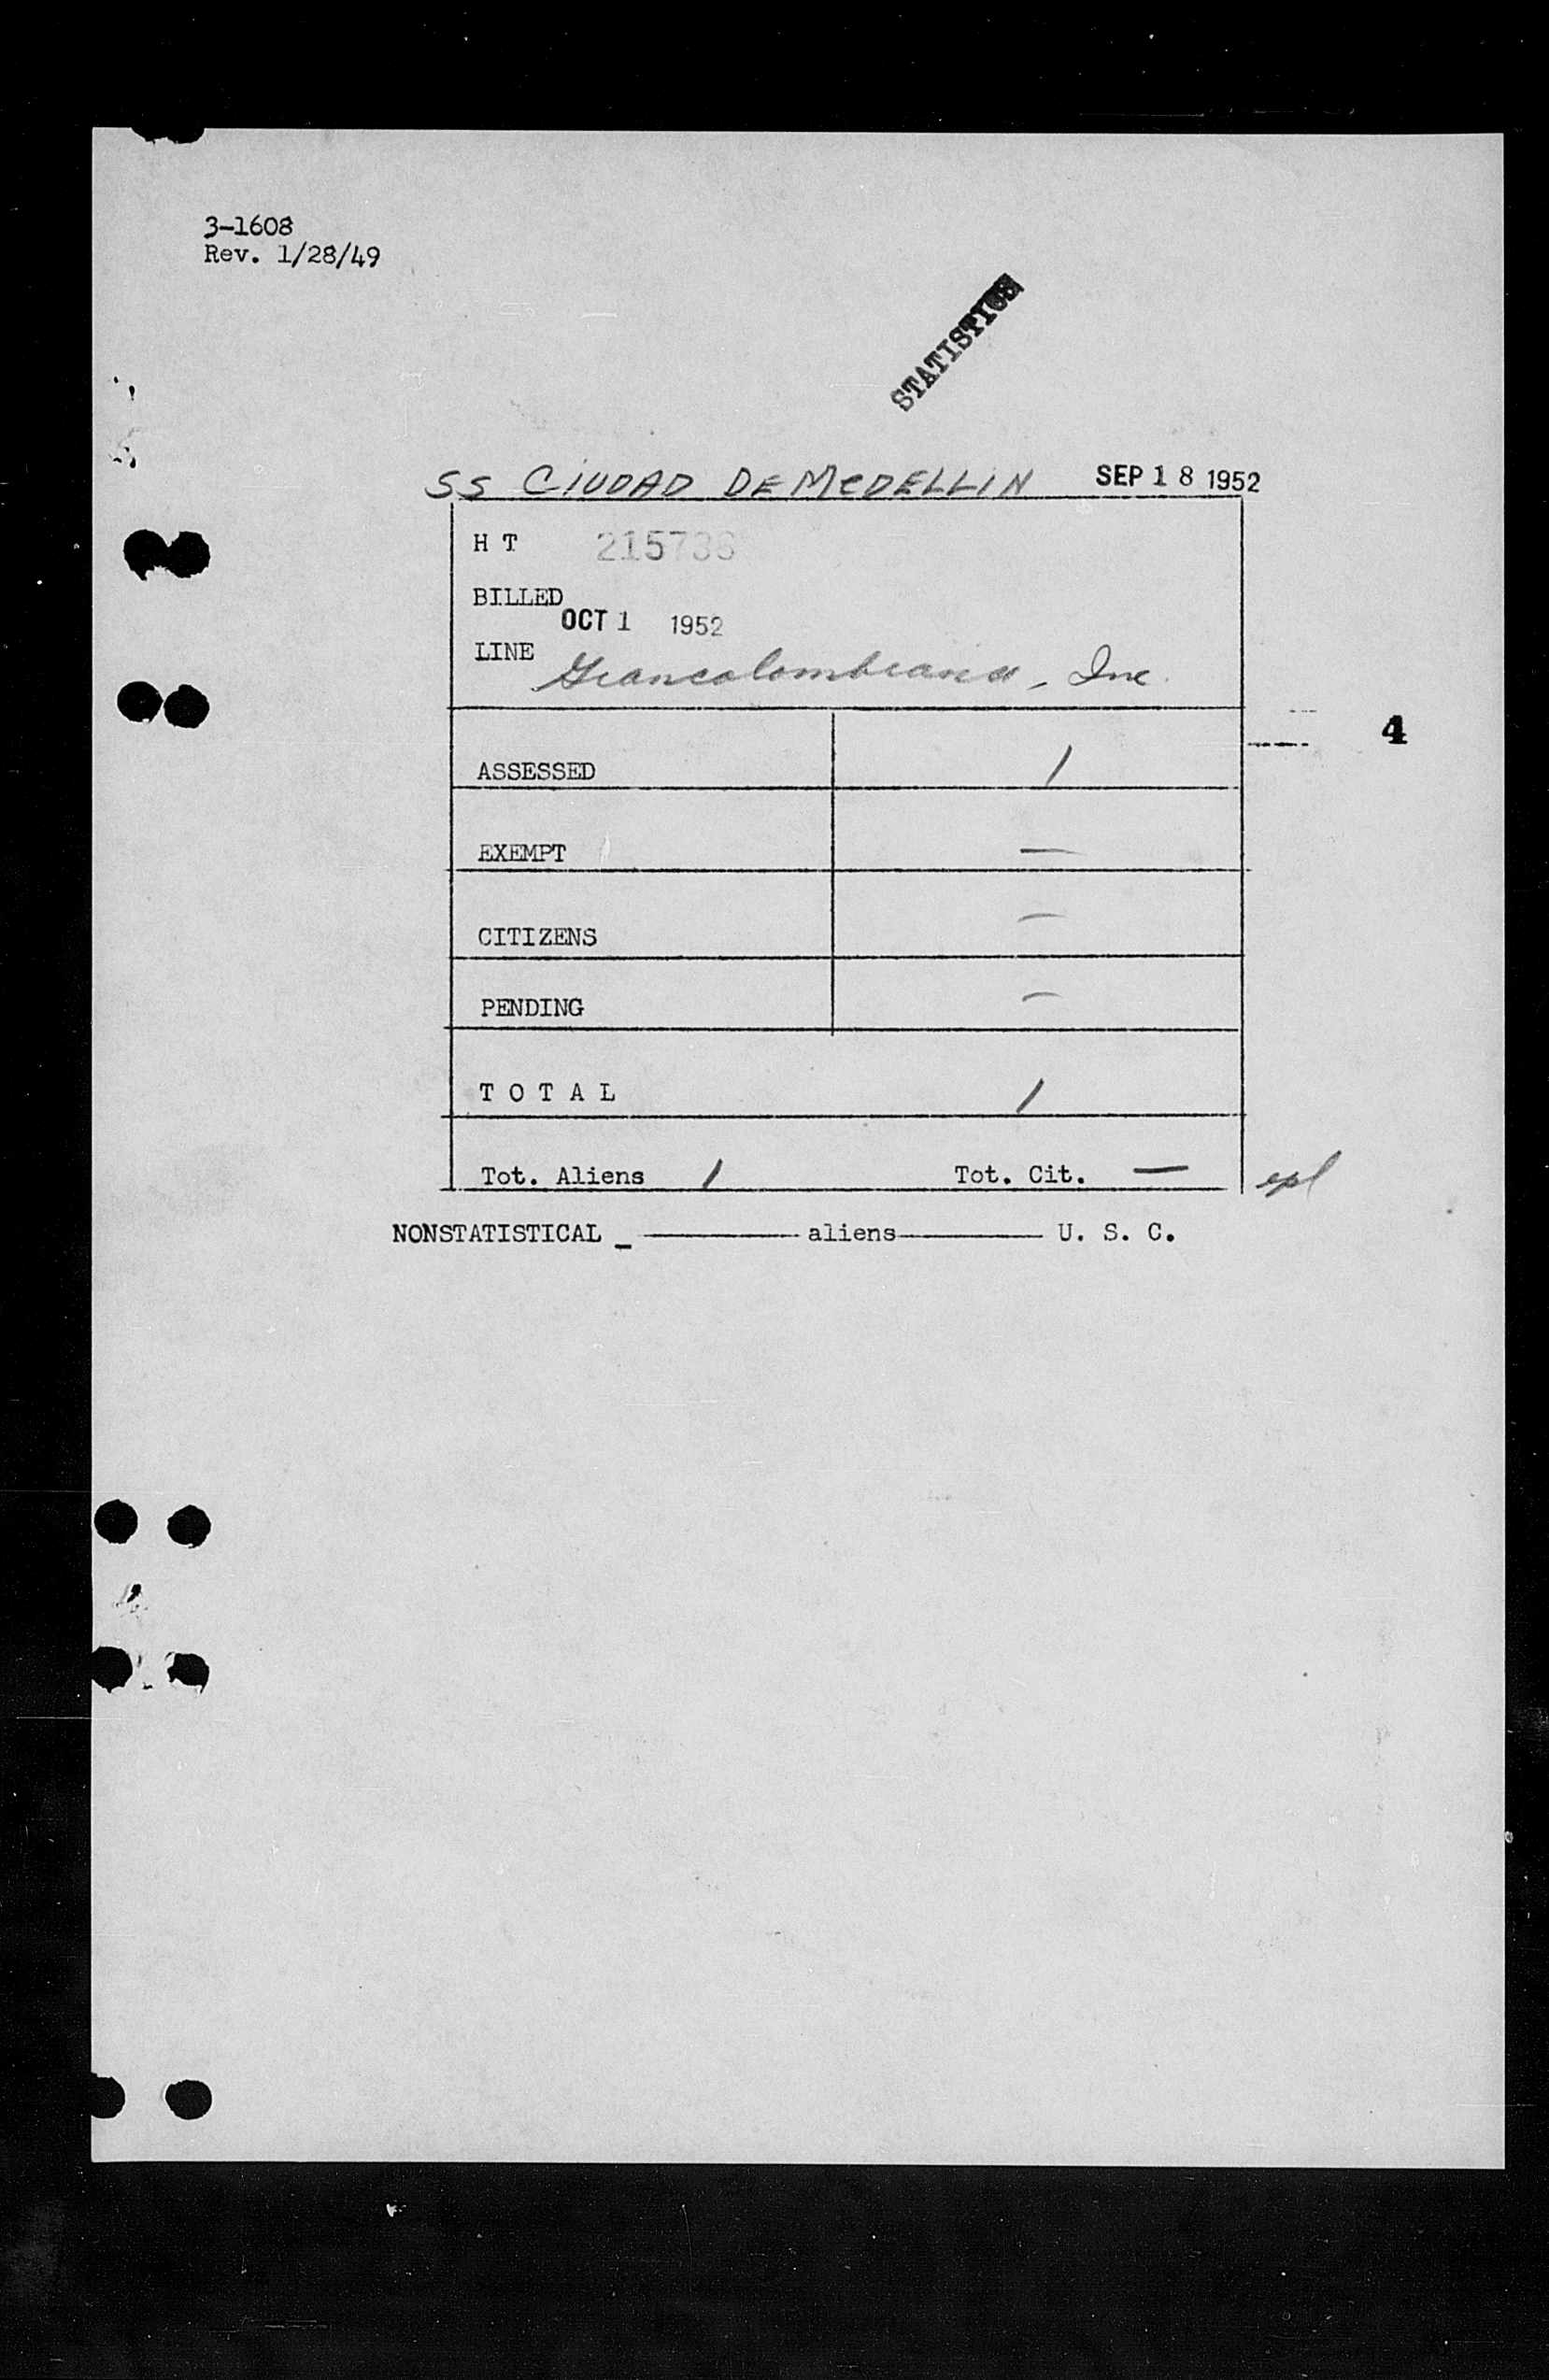 3-1608
Rev. 1/28/49
STATISTICS
SS CIUDAD DE MEDELLIN SEP 18 1952
H T 215736
BILLED
OCT 1 1952
LINE Grancolombiana, Inc.
4
ASSESSED /
EXEMPT —
CITIZENS —
PENDING —
T O T A L /
Tot. Aliens / Tot. Cit. —
NONSTATISTICAL _ ———— aliens ———— U. S. C.